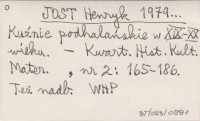 JOST Henryk 1979...
Kuźnie podhalańskie w XIX-XX
wieku. – Kwart. Hist. Kult.
Mater. , nr 2: 165-186.
Też nadb. WHP